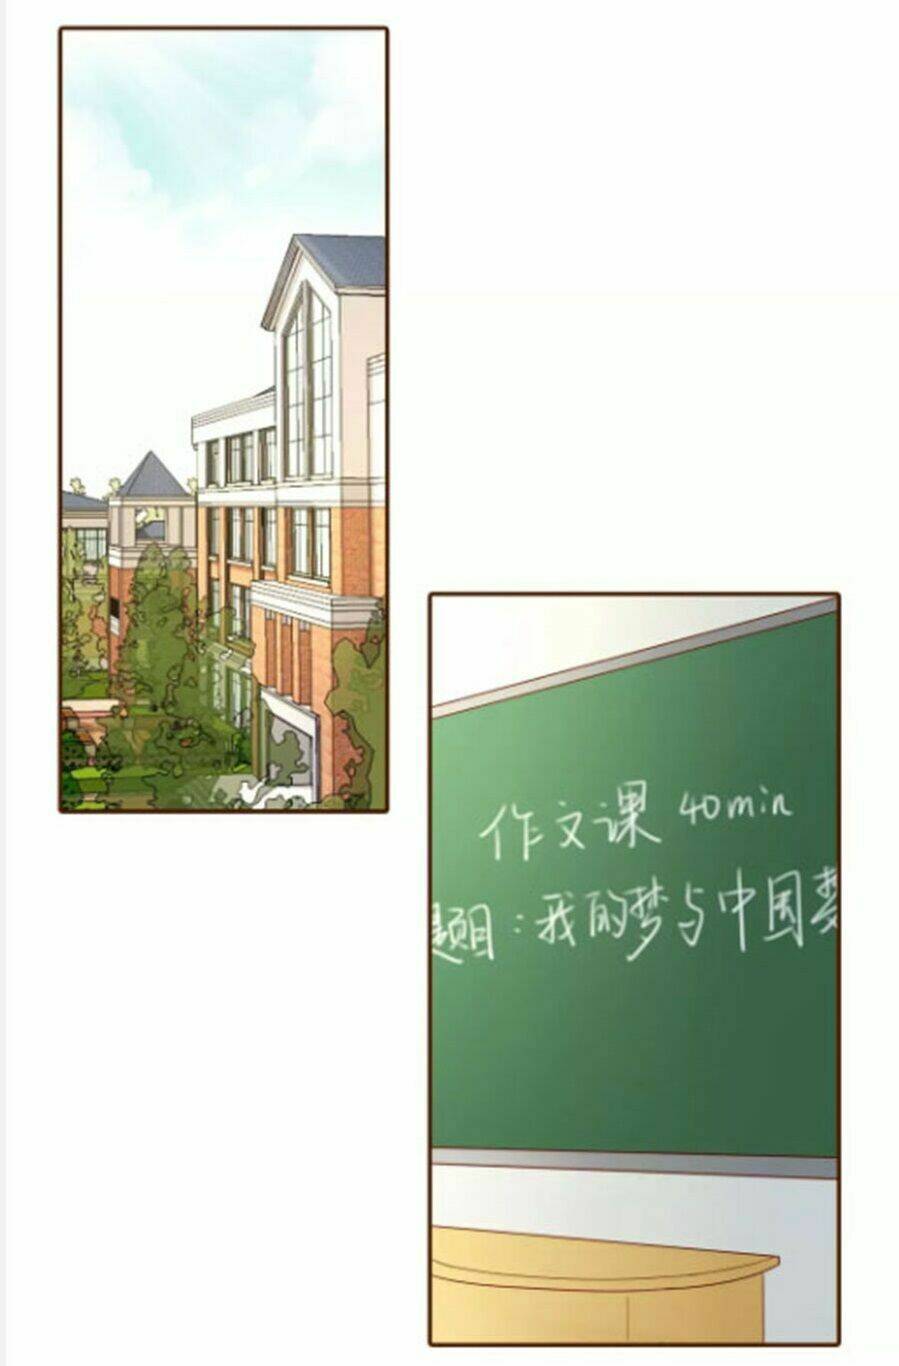 作文课 40min
题目:我的梦与中国梦